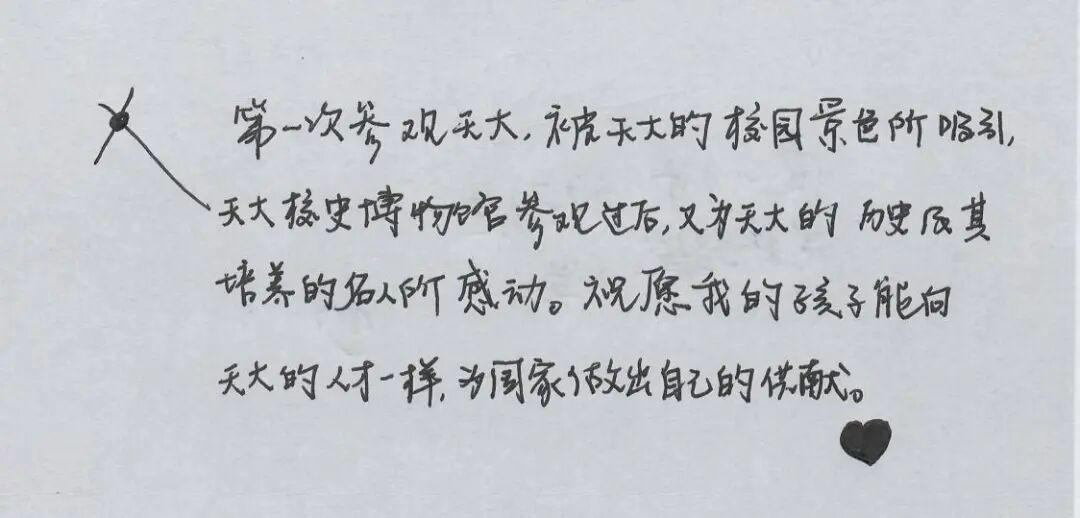 第一次参观天大,被天大的校园景色所吸引,
天大校史博物馆参观过后,又为天大的历史及其
培养的名人所感动。祝愿我的孩子能向
天大的人才一样,为国家做出自己的供献。